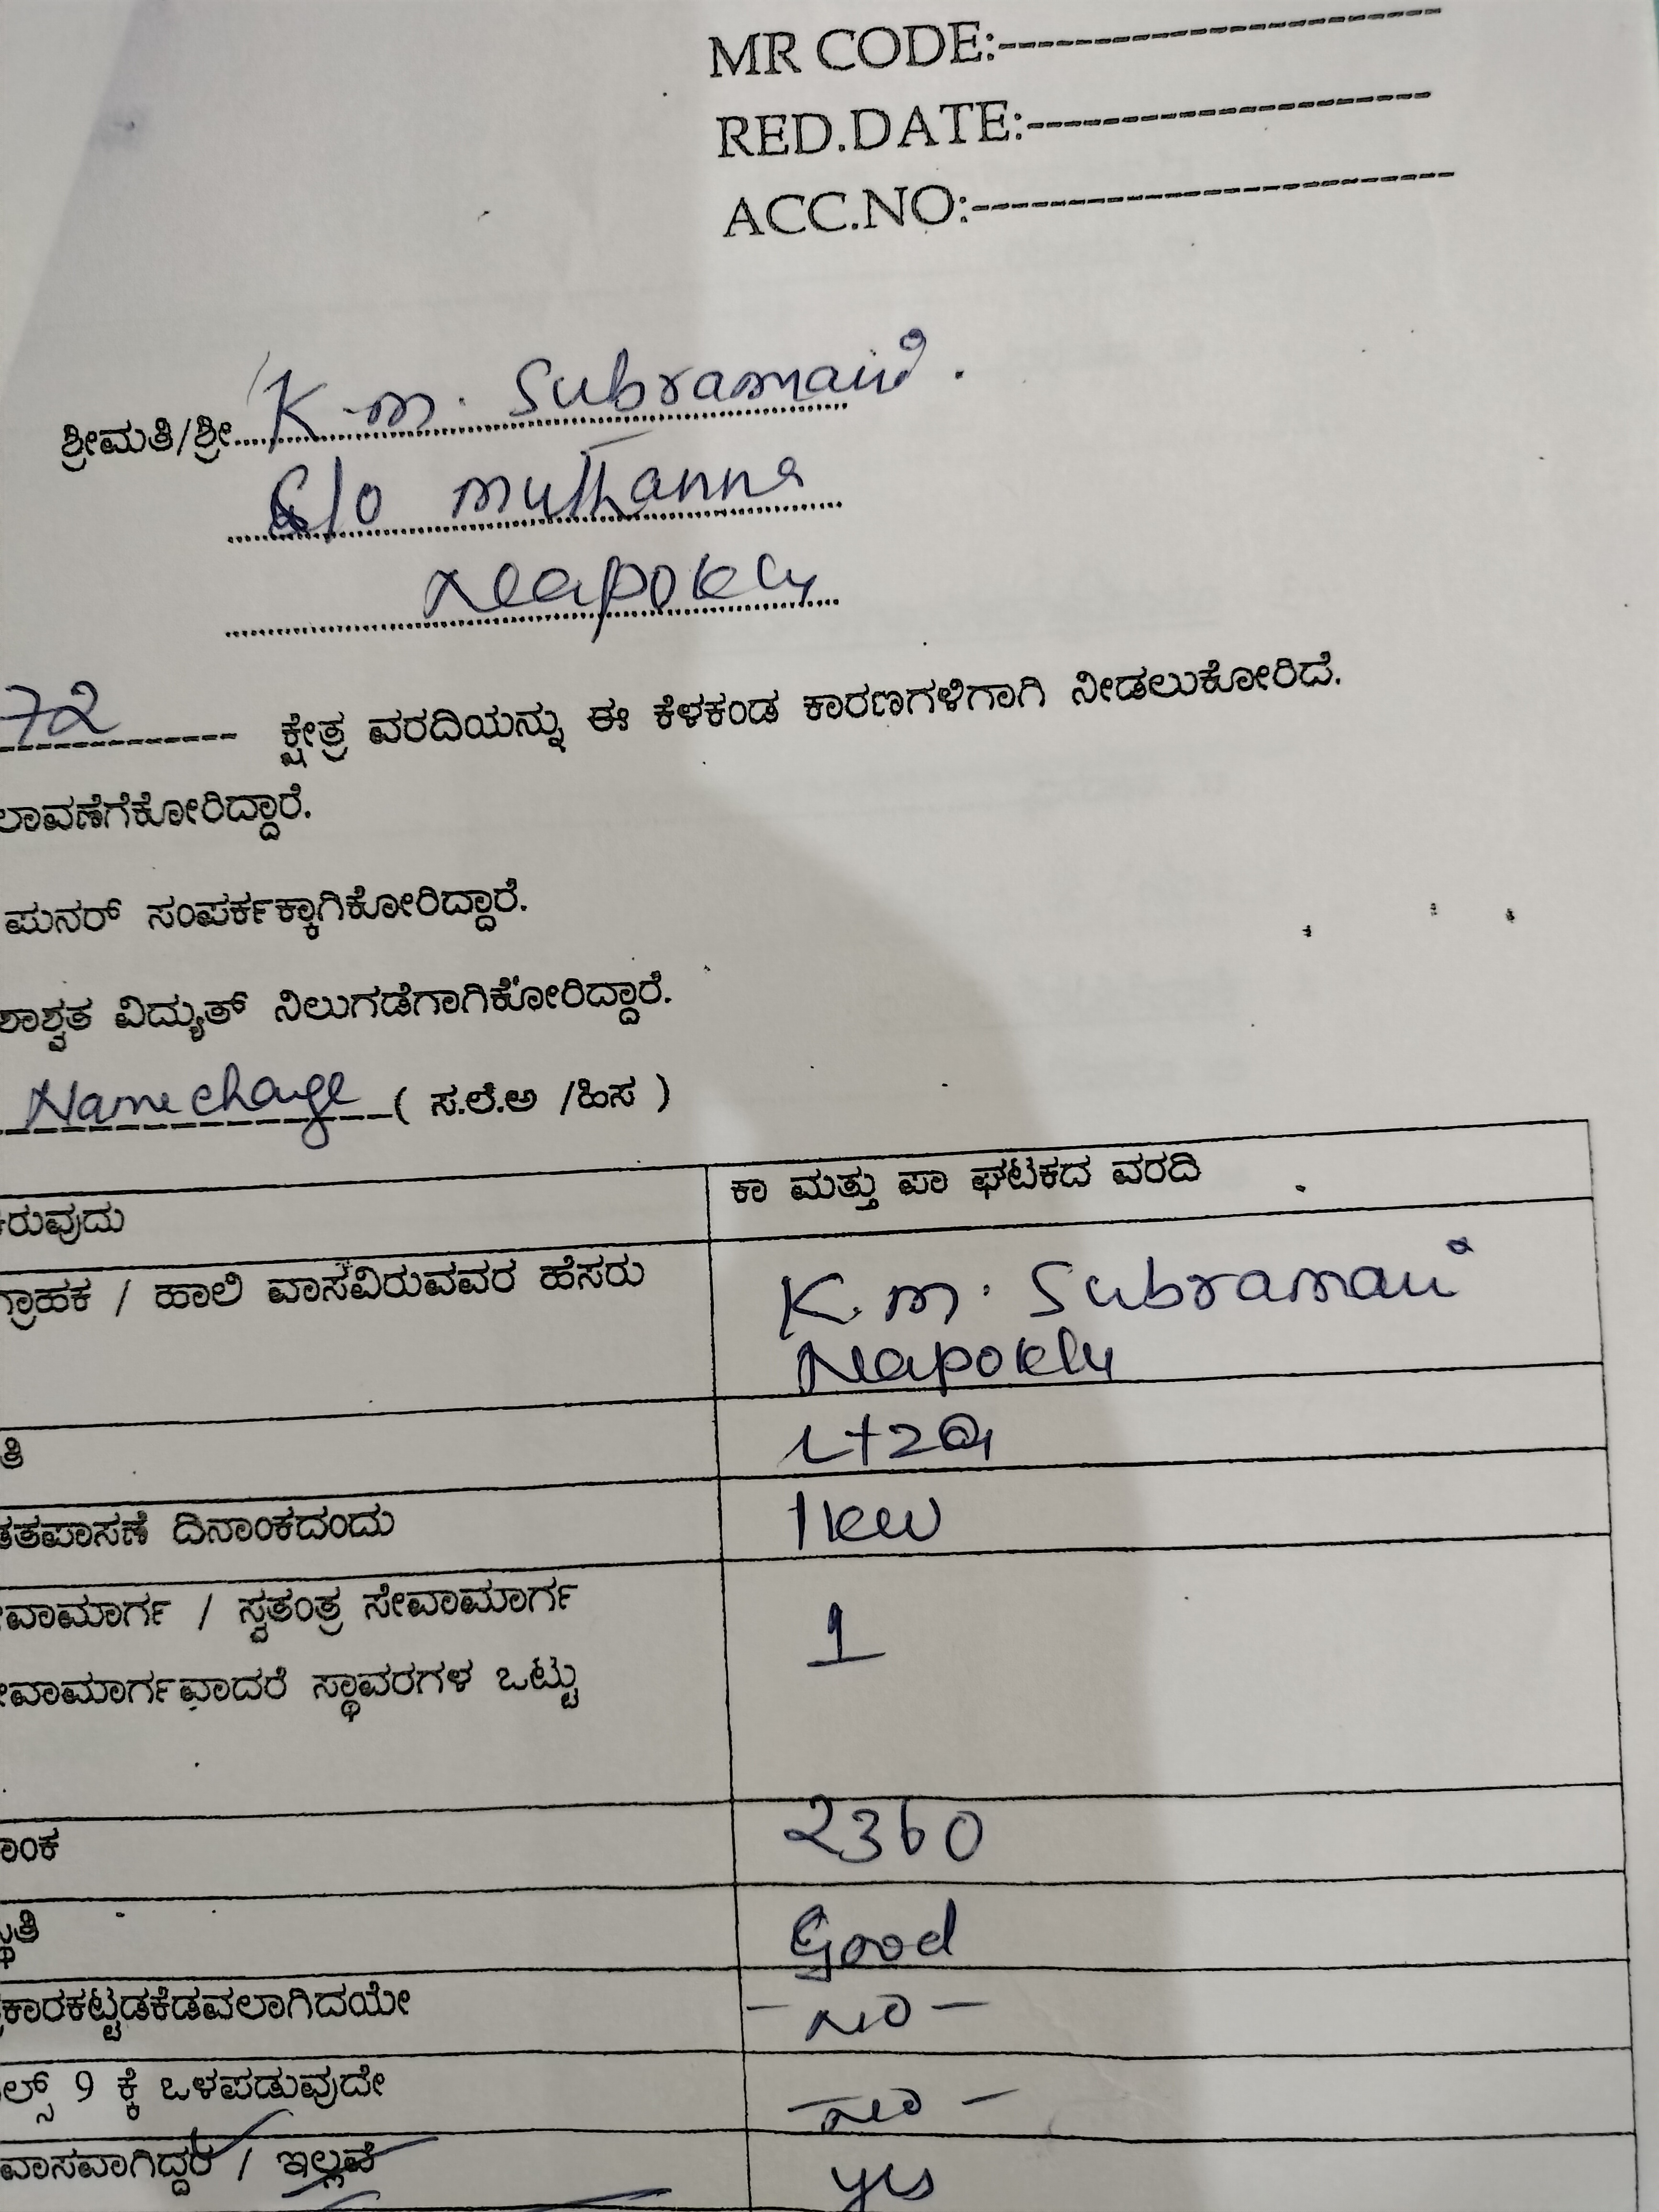 MR CODE:-----------------------------
RED.DATE:---------------------------
ACC.NO:--------------------------------
ಶ್ರೀಮತಿ/ಶ್ರೀ K.m. Subramani.
S/o muthanna
Napokly
72 ಕ್ಷೇತ್ರ ವರದಿಯನ್ನು ಈ ಕೆಳಕಂಡ ಕಾರಣಗಳಿಗಾಗಿ ನೀಡಲುಕೋರಿದೆ.
ಲಾವಣೆಗೆಕೋರಿದ್ದಾರೆ.
ಪುನರ್ ಸಂಪರ್ಕಕ್ಕಾಗಿಕೋರಿದ್ದಾರೆ.
ಶಾಶ್ವತ ವಿದ್ಯುತ್ ನಿಲುಗಡೆಗಾಗಿಕೋರಿದ್ದಾರೆ.
Name change ( ಸ.ಲೆ.ಅ /ಹಿಸ )
ರುವುದು ಕಾ ಮತ್ತು ಪಾ ಘಟಕದ ವರದಿ
ಗ್ರಾಹಕ / ಹಾಲಿ ವಾಸವಿರುವವರ ಹೆಸರು K.m. Subramani
Napokly
ತಿ LT2a
ತಪಾಸಣೆ ದಿನಾಂಕದಂದು 1kw
ವಾಮಾರ್ಗ / ಸ್ವತಂತ್ರ ಸೇವಾಮಾರ್ಗ 1
ವಾಮಾರ್ಗವಾದರೆ ಸ್ಥಾವರಗಳ ಒಟ್ಟು
ಾಂಕ 2360
ಸ್ಥತಿ Good
ಕಾರಕಟ್ಟಡಕೆಡವಲಾಗಿದಯೇ - NO -
ಲ್ಸ್ 9 ಕ್ಕೆ ಒಳಪಡುವುದೇ - NO -
ವಾಸವಾಗಿದ್ದರೆ / ಇಲ್ಲವೆ yes